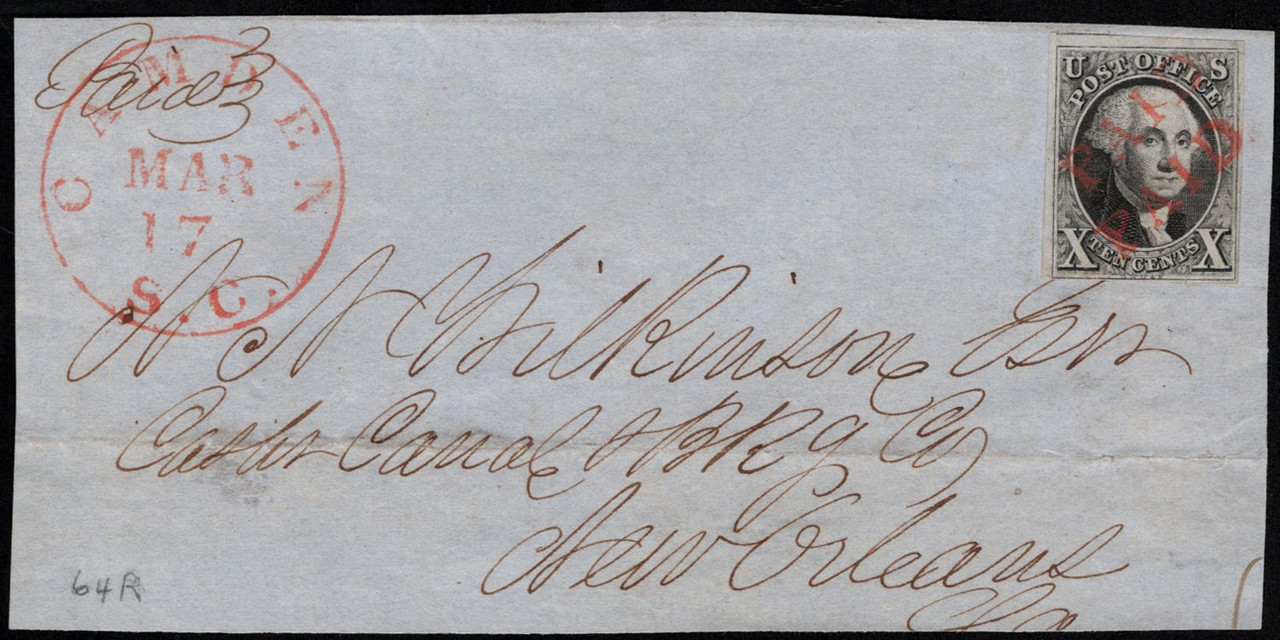 Paid
CAMDEN
MAR
17
S.C.
U S
POST OFFICE
PAID
X TEN CENTS X
Wilkinson Esqr
Cashr Canal & BKg Co
New Orleans
La
64R